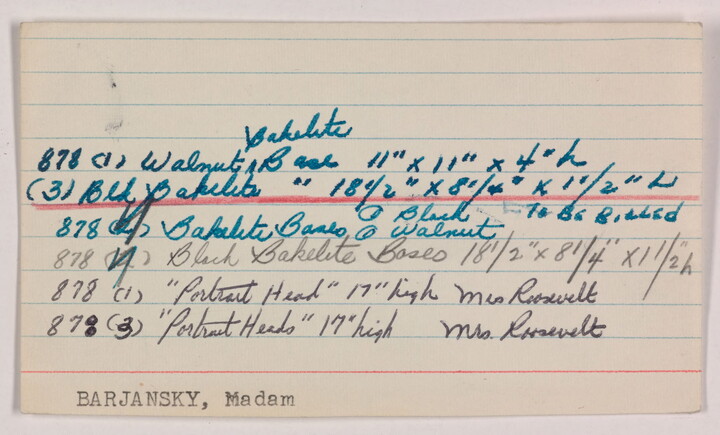 Bakelite
878 (1) Walnut ^ Base 11" x 11" x 4" h
(3) Blk Bakelite " 18 1/2" x 8 1/4" x 1 1/2" h
Black To Be Billed
878 Bakelite Bases Walnut
878 Black Bakelite Bases 18 1/2" x 8 1/4" x 1 1/2" h
878 (1) "Portrait Head" 17" high Mrs Roosevelt
878 (3) "Portrait Heads" 17" high Mrs. Roosevelt
BARJANSKY, Madam